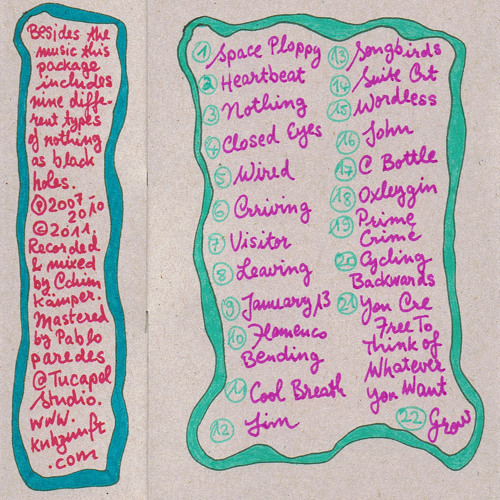 Besides the
music this
package
includes
nine diffe-
rent types
of nothing
as black
holes.
℗ 2007
2010
© 2011,
Recorded
& mixed
by Cdum
Kämper.
Mastered
by Pablo
paredes
@ Tucapel
Studio.
www.
.com
1 Space Ploppy
2 Heartbeat
3 Nothing
4 Closed Eyes
5 Wired
6 Crriving
7 Visitor
8 Leaving
9 Januuary 13
10 Flamenco
Bending
11 Cool Breath
12 Jim
13 Songbirds
14 Suite Crt
15 Wordless
16 John
17 C Bottle
18 Oxleggin
19 Prime
Crime
20 Cycling
Backwards
21 You Cre
Free To
Think of
Whatever
you Want
22 Grow